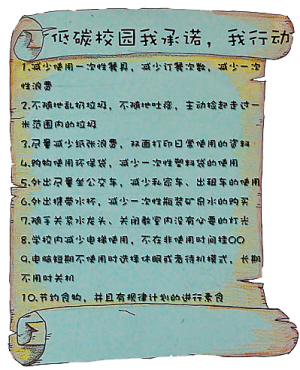 低碳校园我承诺，我行动
1.减少使用一次性餐具，减少订餐次数，减少一次
性浪费
2.不随地乱扔垃圾，不随地吐痰，主动捡起走过一
米范围内的垃圾
3.尽量减少纸张浪费，双面打印日常使用的资料
4.购物使用环保袋，减少一次性塑料袋的使用
5.外出尽量坐公交车，减少私家车、出租车的使用
6.外出携带水杯，减少一次性瓶装矿泉水的购买
7.随手关紧水龙头、关闭教室内没有必要的灯光
8.学校内减少电梯使用，不在非使用时间挂QQ
9.电脑短期不使用时选择休眠或者待机模式，长期
不用时关机
10.节约食物，并且有规律计划的进行素食